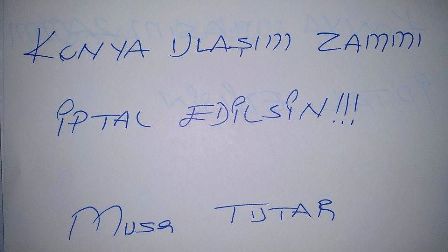 KONYA ULAŞIM ZAMMI
İPTAL EDİLSİN!!!
Musa TUTAR